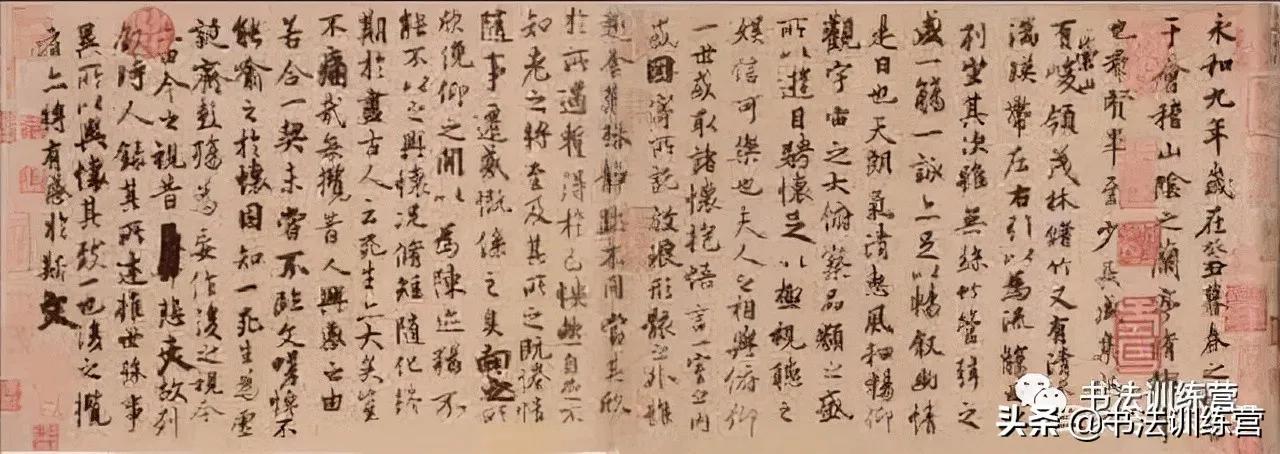 永和九年歲在癸丑暮春之
于會稽山陰之蘭亭脩
也羣賢畢至少長咸集此
崇山
有峻領茂林脩竹又有清
湍暎帶左右引以為流觴
列坐其次雖無絲竹管弦之
盛一觴一詠亦足以暢叙幽情
是日也天朗氣清惠風和暢仰
觀宇宙之大俯察品類之盛
所以遊目騁懷足以極視聽之
娛信可樂也夫人之相與俯仰
一世或取諸懷抱悟言一室之內
或因寄所託放浪形骸之外雖
趣舍萬殊靜躁不同當其欣
於所遇蹔得於己怏然自足不
知老之將至及其所之既惓情
隨事遷感慨係之矣向之所
欣俛仰之閒以為陳迹猶不
能不以之興懷況脩短隨化終
期於盡古人云死生亦大矣豈
不痛哉每攬昔人興感之由
若合一契未嘗不臨文嗟悼不
能喻之於懷固知一死生為虛
誕齊彭殤為妄作後之視今
亦由今之視昔悲夫故列
敘時人錄其所述雖世殊事
異所以興懷其致一也後之攬
者亦將有感於斯文
书法训练营
头条@书法训练营